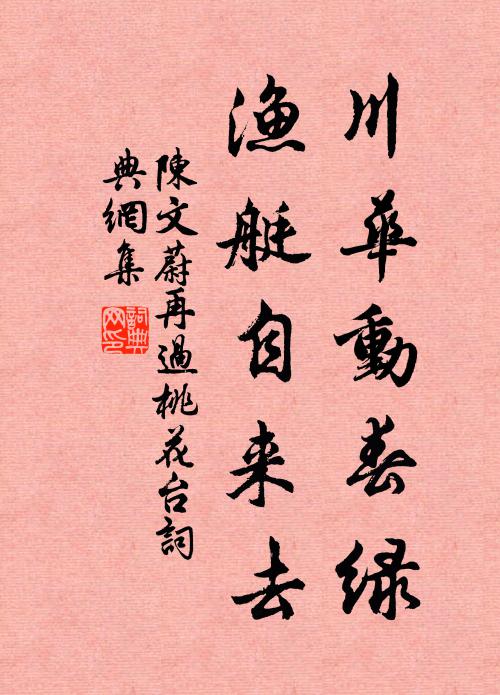 川華動春綠
漁艇自来去
陳文蔚再過桃花台詞
典網集
詞典
网印